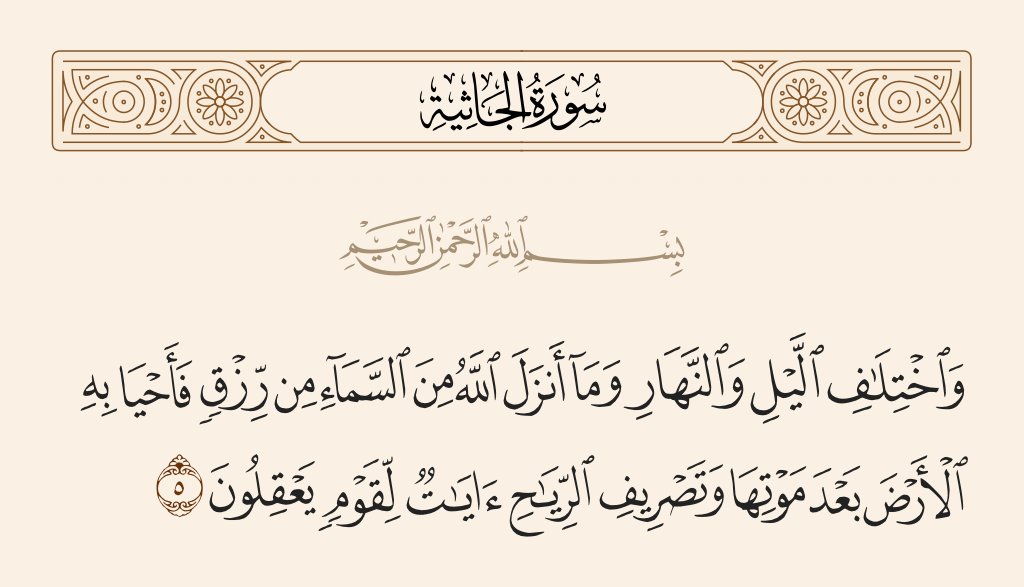 سُورَةُ الجَاثِيَةِ
بِسْمِ ٱللَّهِ ٱلرَّحْمَٰنِ ٱلرَّحِيمِ
وَٱخْتِلَٰفِ ٱلَّيْلِ وَٱلنَّهَارِ وَمَآ أَنزَلَ ٱللَّهُ مِنَ ٱلسَّمَآءِ مِن رِّزْقٍ فَأَحْيَا بِهِ
ٱلْأَرْضَ بَعْدَ مَوْتِهَا وَتَصْرِيفِ ٱلرِّيَٰحِ ءَايَٰتٌ لِّقَوْمٍ يَعْقِلُونَ ٥